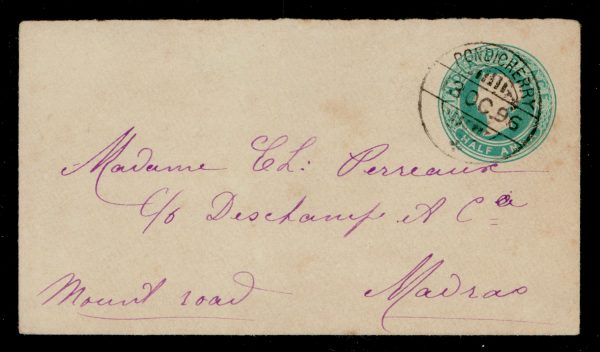 PONDICHERRY
OC.96
HALF AN
Madame Ch: Perreaux
c/o Deschamps & Ca
Mount road
Madras